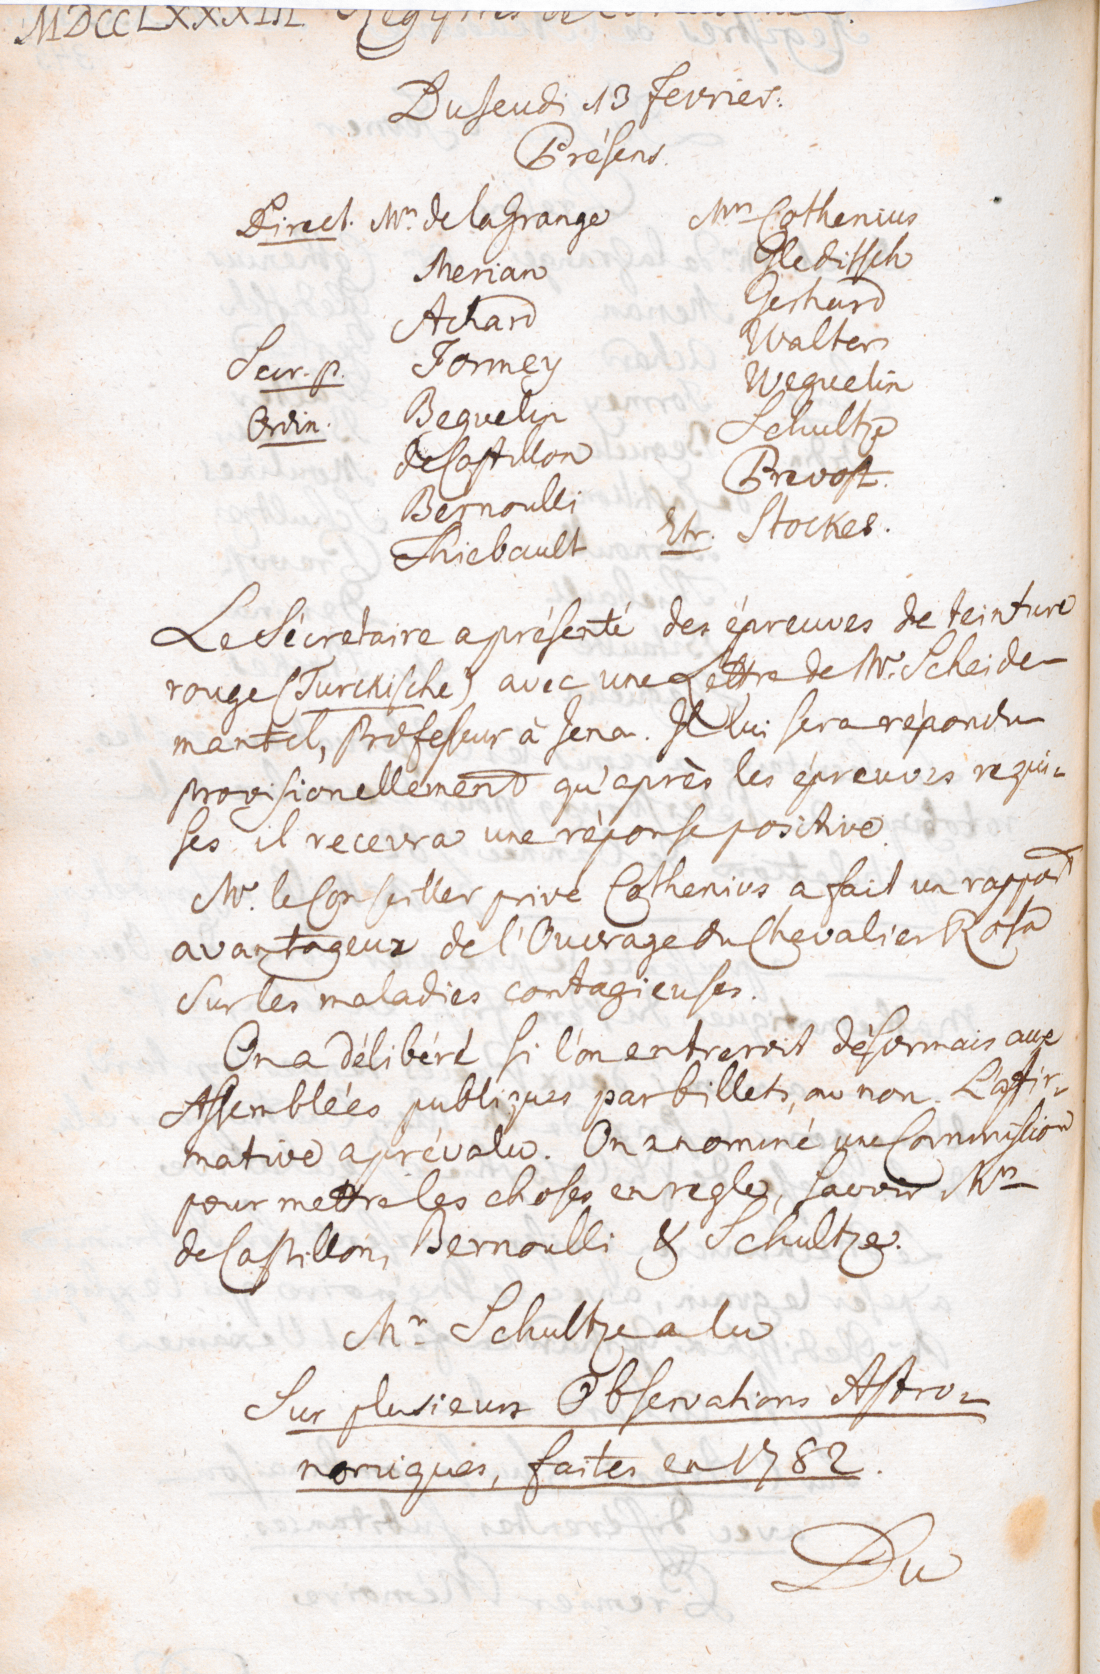 MDCCLXXXIII. Registres de l'Académie.
Du Jeudi 13 Fevrier.
Présens.
Direct. Mrs. de la Grange
Merian
Achard
Secr. p. Formey
Ordin. Beguelin
de Castillon
Bernoulli
Thiebault
Mrs Cothenius
Gleditsch
Gerhard
Walter
Weguelin
Schultze
Prevost.
Etr. Stockes.
Le Sécretaire a présenté des épreuves de teinture
rouge (Turckische) avec une Lettre de Mr. Scheide-
mantel, Professeur à Jena. Il lui sera répondu
provisionellement qu'après les épreuves requi-
ses il recevra une réponse positive.
Mr. le Conseiller privé Cothenius a fait un rapport
avantageux de l'Ouvrage du Chevalier Rosa
sur les maladies contagieuses.
On a délibéré si l'on entreroit désormais aux
Assemblées publiques par billets, ou non. L'affir-
mative a prévalu. On a nommé une Commission
pour mettre les choses en regle, savoir Mrs
de Castillon, Bernoulli & Schultze.
Mr Schultze a lu
Sur plusieurs Observations Astro-
nomiques, faites en 1782.
Du